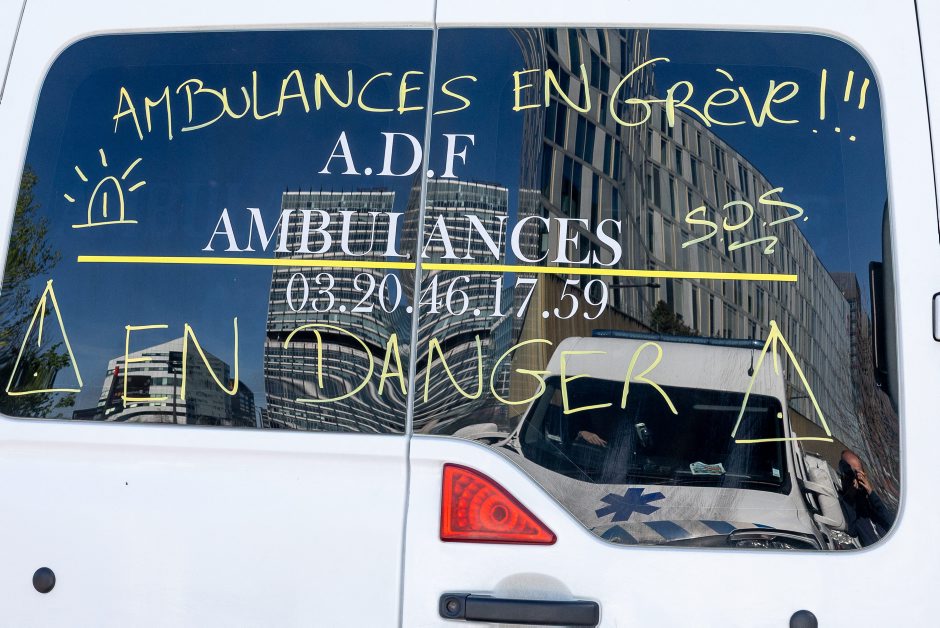 AMBULANCES EN GRÈVE!!!
A.D.F
S.O.S.
AMBULANCES
03.20.46.17.59
EN DANGER